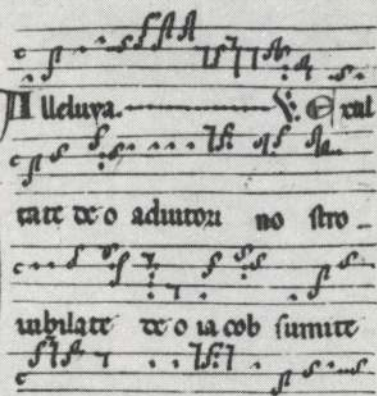 Alleluya. ℣. Exul
tate deo adiutori no stro
iubilate deo ia cob sumite